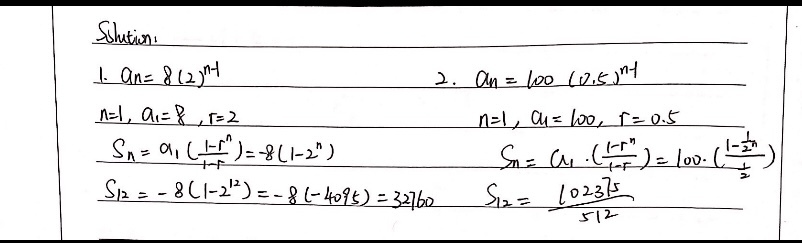 Solution:
1. an = 8(2)^n-1
n=1, a1=8, r=2
Sn = a1 (1-r^n/1-r) = -8(1-2^n)
S12 = -8(1-2^12) = -8(-4095) = 32760
2. an = 100 (0.5)^n-1
n=1, a1 = 100, r = 0.5
Sn = a1 · (1-r^n/1-r) = 100 · (1-1/2^n / 1/2)
S12 = 102375/512